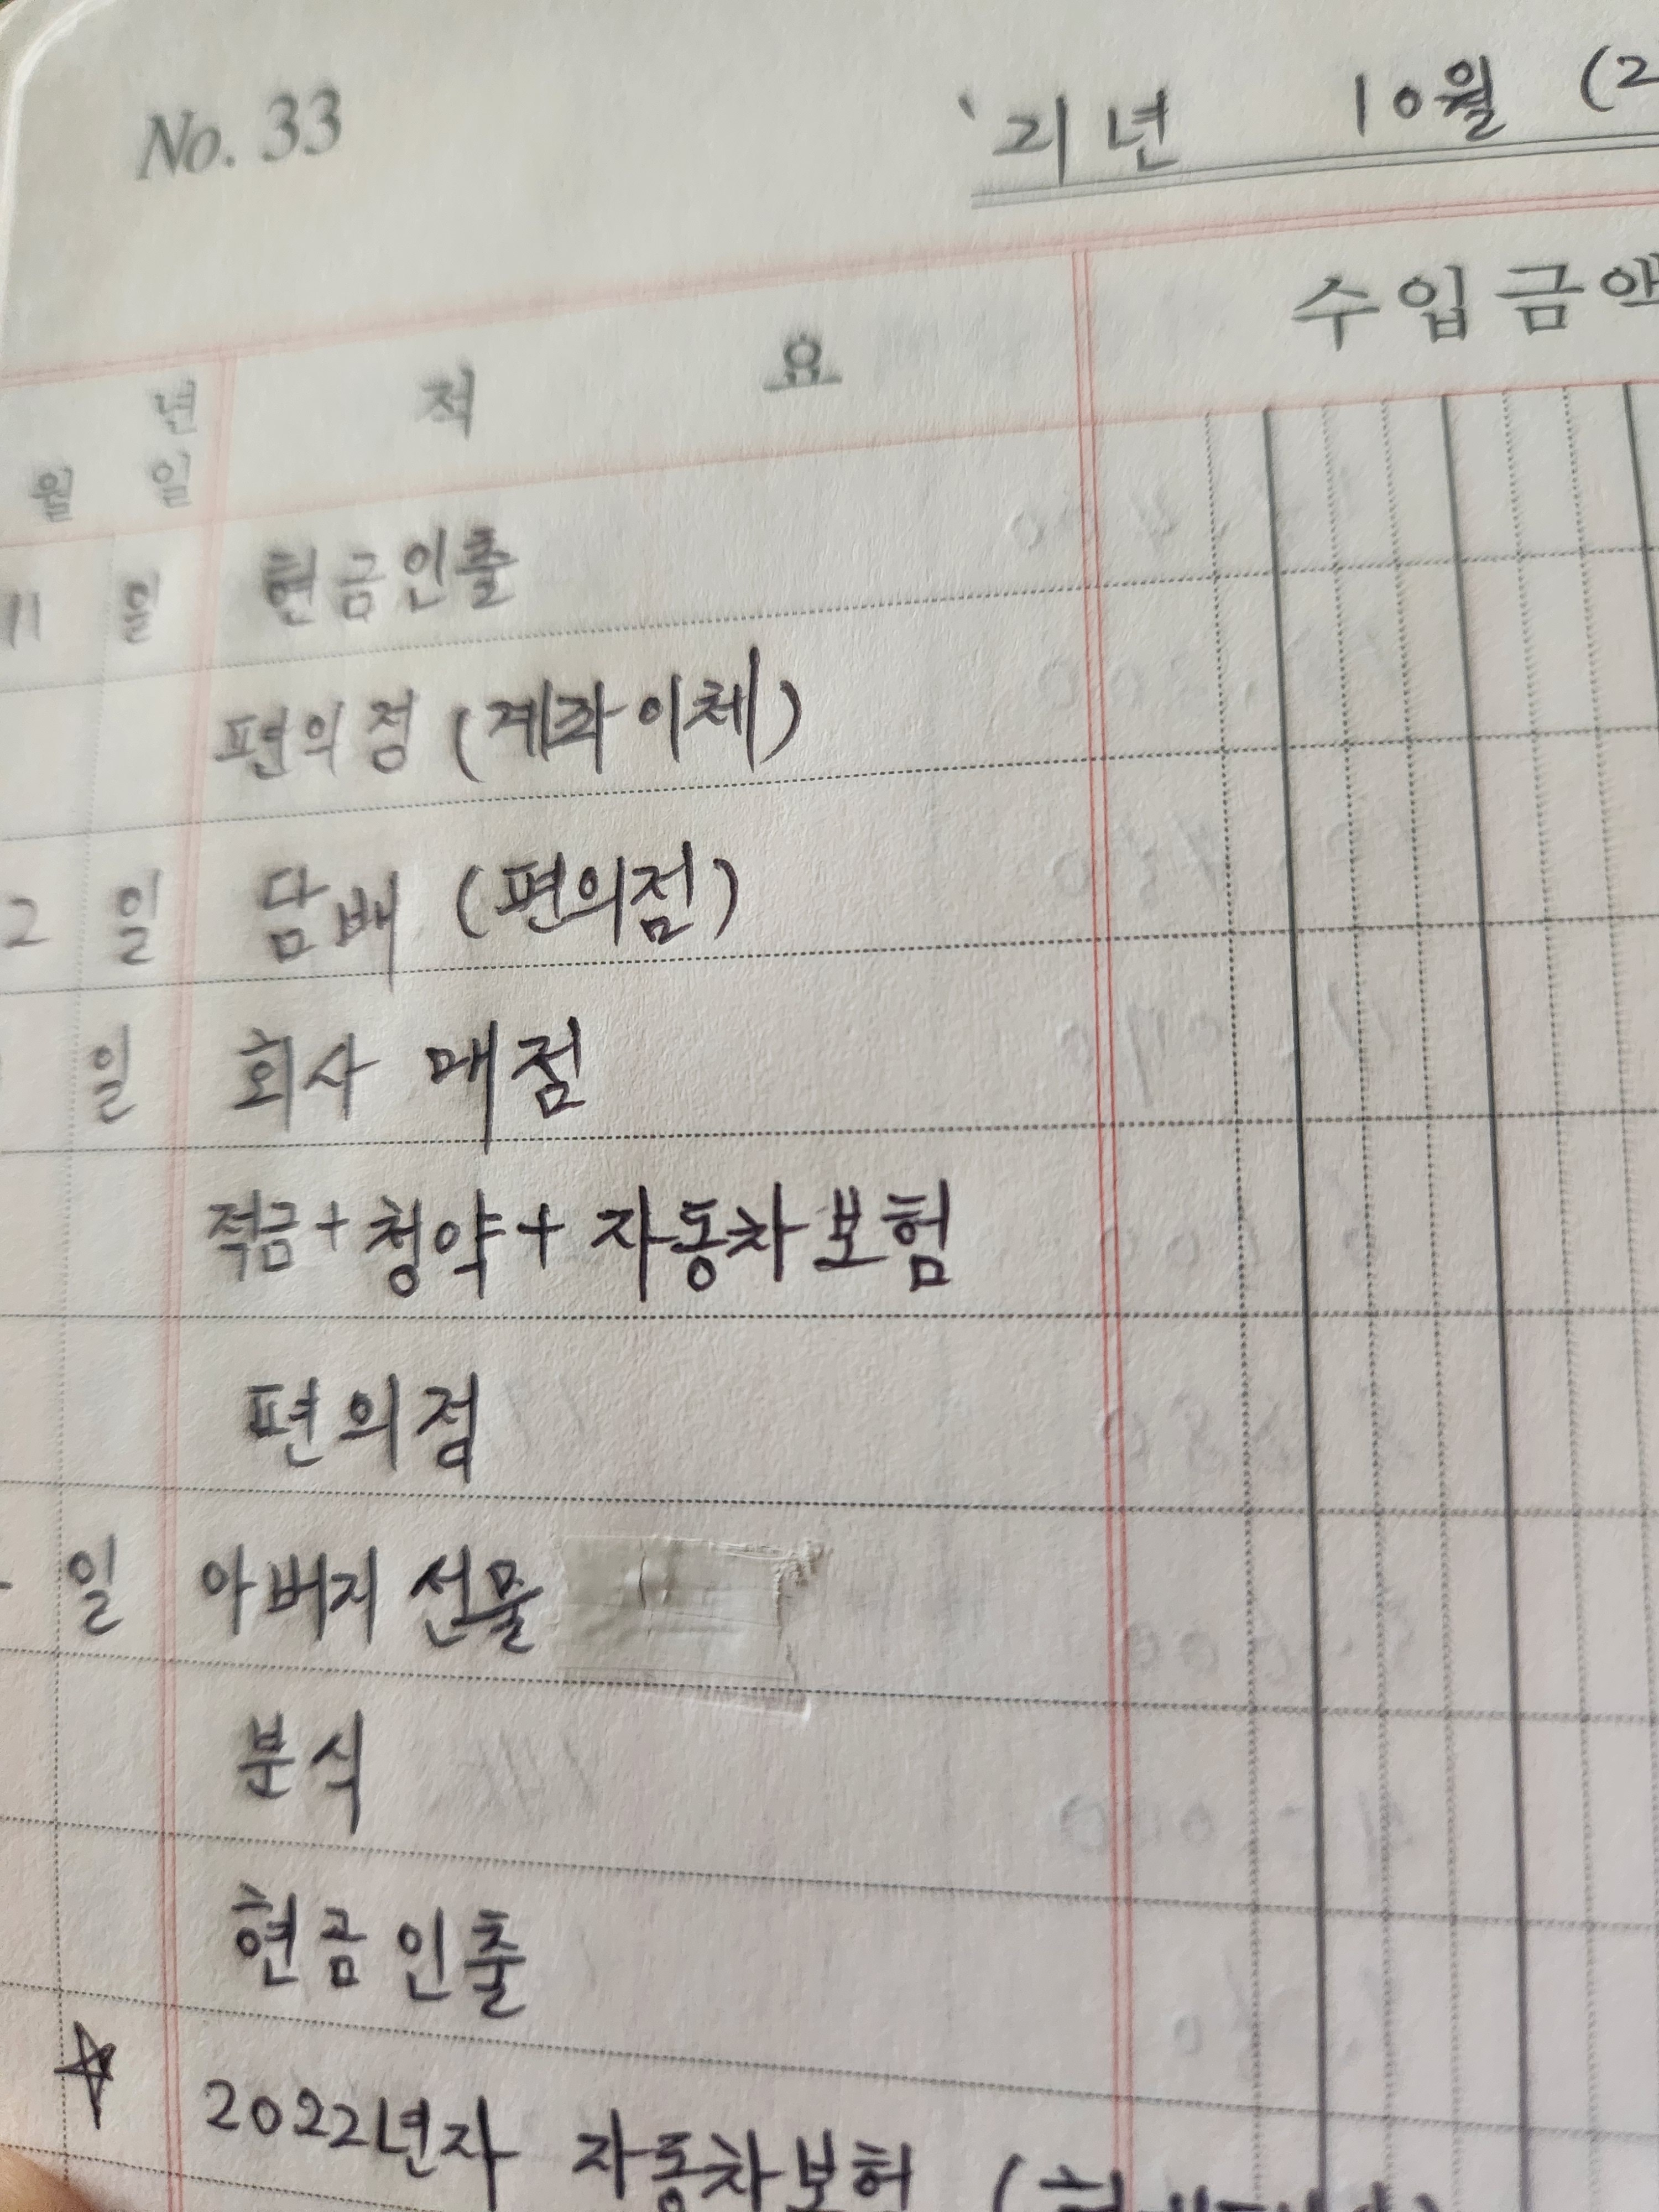 No. 33
'21년 10월 (2
년 적 요 수입금액
월 일
11 일 현금인출
편의점 (계좌이체)
2 일 담배 (편의점)
일 회사 매점
적금+청약+자동차보험
편의점
일 아버지 선물
분식
현금인출
☆ 2022년자 자동차보험 (